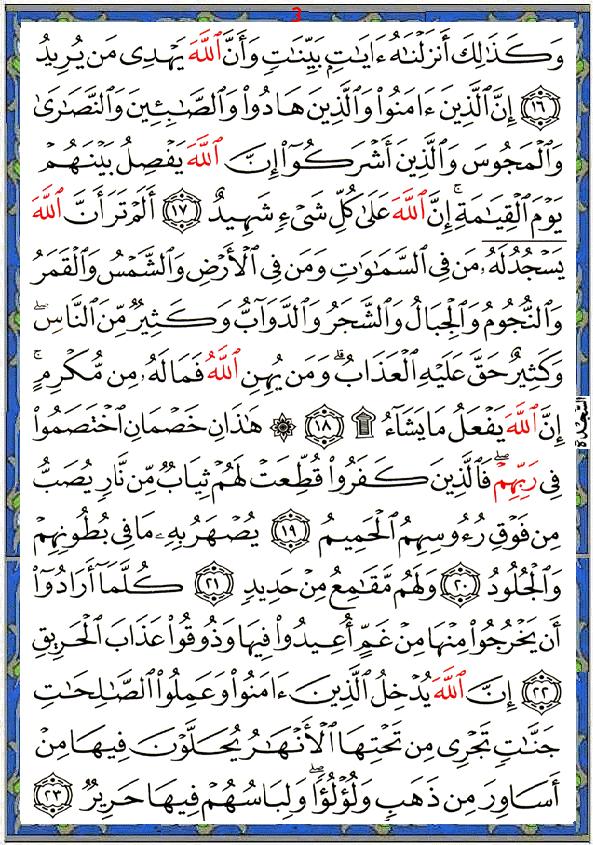 3
وَكَذَٰلِكَ أَنزَلْنَٰهُ ءَايَٰتٍۭ بَيِّنَٰتٍ وَأَنَّ ٱللَّهَ يَهْدِى مَن يُرِيدُ
١٦ إِنَّ ٱلَّذِينَ ءَامَنُوا۟ وَٱلَّذِينَ هَادُوا۟ وَٱلصَّٰبِـِٔينَ وَٱلنَّصَٰرَىٰ
وَٱلْمَجُوسَ وَٱلَّذِينَ أَشْرَكُوٓا۟ إِنَّ ٱللَّهَ يَفْصِلُ بَيْنَهُمْ
يَوْمَ ٱلْقِيَٰمَةِ ۚ إِنَّ ٱللَّهَ عَلَىٰ كُلِّ شَىْءٍ شَهِيدٌ ١٧ أَلَمْ تَرَ أَنَّ ٱللَّهَ
يَسْجُدُ لَهُۥ مَن فِى ٱلسَّمَٰوَٰتِ وَمَن فِى ٱلْأَرْضِ وَٱلشَّمْسُ وَٱلْقَمَرُ
وَٱلنُّجُومُ وَٱلْجِبَالُ وَٱلشَّجَرُ وَٱلدَّوَآبُّ وَكَثِيرٌ مِّنَ ٱلنَّاسِ ۖ
وَكَثِيرٌ حَقَّ عَلَيْهِ ٱلْعَذَابُ ۗ وَمَن يُهِنِ ٱللَّهُ فَمَا لَهُۥ مِن مُّكْرِمٍ ۚ
إِنَّ ٱللَّهَ يَفْعَلُ مَا يَشَآءُ ۩ ١٨ ۞ هَٰذَانِ خَصْمَانِ ٱخْتَصَمُوا۟
السَّجْدَة
فِى رَبِّهِمْ ۖ فَٱلَّذِينَ كَفَرُوا۟ قُطِّعَتْ لَهُمْ ثِيَابٌ مِّن نَّارٍ يُصَبُّ
مِن فَوْقِ رُءُوسِهِمُ ٱلْحَمِيمُ ١٩ يُصْهَرُ بِهِۦ مَا فِى بُطُونِهِمْ
وَٱلْجُلُودُ ٢٠ وَلَهُم مَّقَٰمِعُ مِنْ حَدِيدٍ ٢١ كُلَّمَآ أَرَادُوٓا۟
أَن يَخْرُجُوا۟ مِنْهَا مِنْ غَمٍّ أُعِيدُوا۟ فِيهَا وَذُوقُوا۟ عَذَابَ ٱلْحَرِيقِ
٢٢ إِنَّ ٱللَّهَ يُدْخِلُ ٱلَّذِينَ ءَامَنُوا۟ وَعَمِلُوا۟ ٱلصَّٰلِحَٰتِ
جَنَّٰتٍ تَجْرِى مِن تَحْتِهَا ٱلْأَنْهَٰرُ يُحَلَّوْنَ فِيهَا مِنْ
أَسَاوِرَ مِن ذَهَبٍ وَلُؤْلُؤًا ۖ وَلِبَاسُهُمْ فِيهَا حَرِيرٌ ٢٣